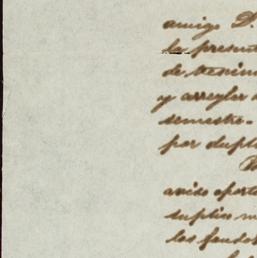 amigo D.
la presen
de
y arreglar
semestre.
por dupl
aviso oport
suplico
los fondo